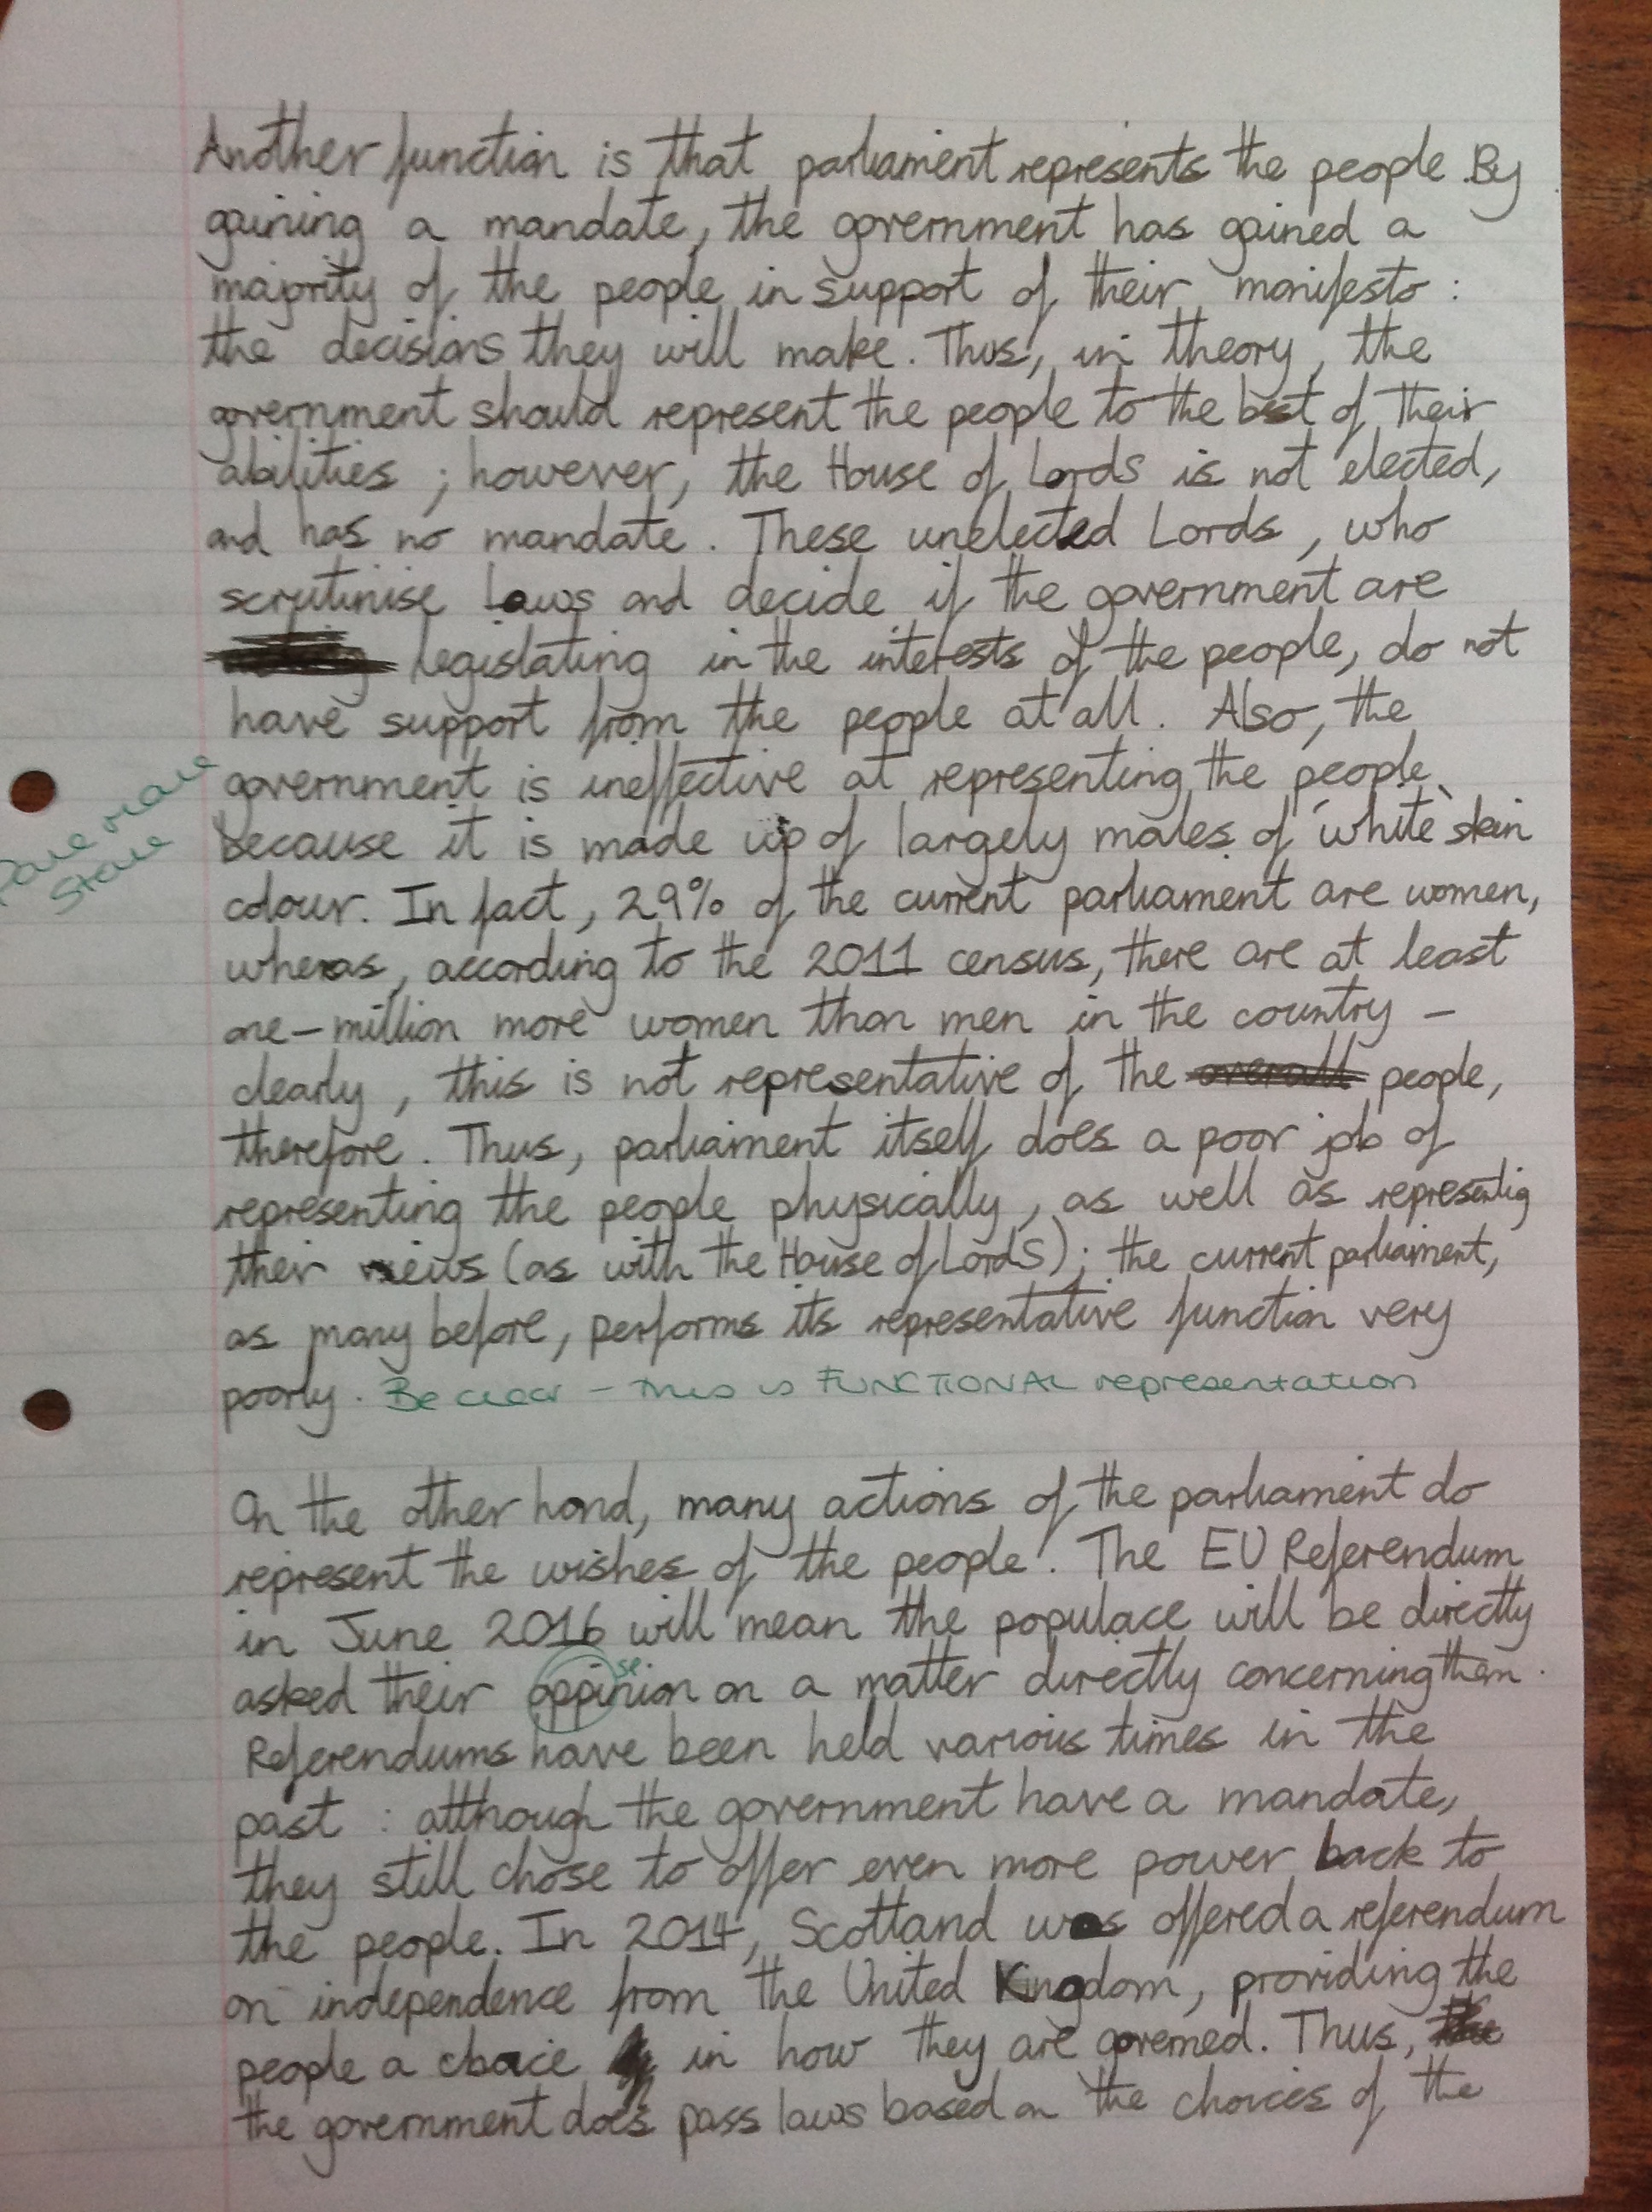 Another function is that parliament represents the people. By
gaining a mandate, the government has gained a
majority of the people in support of their manifesto :
the decisions they will make. Thus, in theory, the
government should represent the people to the best of their
abilities ; however, the House of Lords is not elected,
and has no mandate. These unelected Lords, who
scrutinise laws and decide if the government are
legislating in the interests of the people, do not
have support from the people at all. Also, the
government is ineffective at representing the people
because it is made up of largely males of 'white' skin
colour. In fact, 29% of the current parliament are women,
wheras, according to the 2011 census, there are at least
one-million more women than men in the country –
clearly, this is not representative of the overall people,
therefore. Thus, parliament itself does a poor job of
representing the people physically, as well as representig
their views (as with the House of Lords); the current parliament,
as many before, performs its representative function very
poorly. Be clear – this is FUNCTIONAL representation
On the other hand, many actions of the parliament do
represent the wishes of the people. The EU Referendum
in June 2016 will mean the populace will be directly
sp
asked their oppinion on a matter directly concerning them.
Referendums have been held various times in the
past : although the government have a mandate,
they still chose to offer even more power back to
the people. In 2014, Scotland was offered a referendum
on independence from the United Kingdom, providing the
people a choice in how they are governed. Thus, the
the government does pass laws based on the choices of the